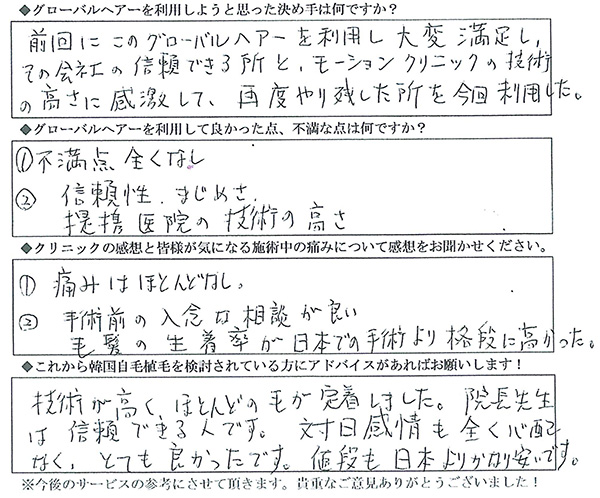 ◆グローバルヘアーを利用しようと思った決め手は何ですか？
前回にこのグローバルヘアーを利用し大変満足し、
その会社の信頼できる所と、モーションクリニックの技術
の高さに感激して、再度やり残した所を今回利用した。
◆グローバルヘアーを利用して良かった点、不満な点は何ですか？
①不満点 全くなし
② 信頼性、まじめさ、
提携医院の技術の高さ
◆クリニックの感想と皆様が気になる施術中の痛みについて感想をお聞かせください。
① 痛みはほとんどなし。
② 手術前の入念な相談が良い
毛髪の生着率が日本での手術より格段に高かった。
◆これから韓国自毛植毛を検討されている方にアドバイスがあればお願いします！
技術が高く、ほとんどの毛が定着しました。院長先生
は信頼できる人です。対日感情も全く心配
なく、とても良かったです。値段も日本よりかなり安いです。
※今後のサービスの参考にさせて頂きます。貴重なご意見ありがとうございました！